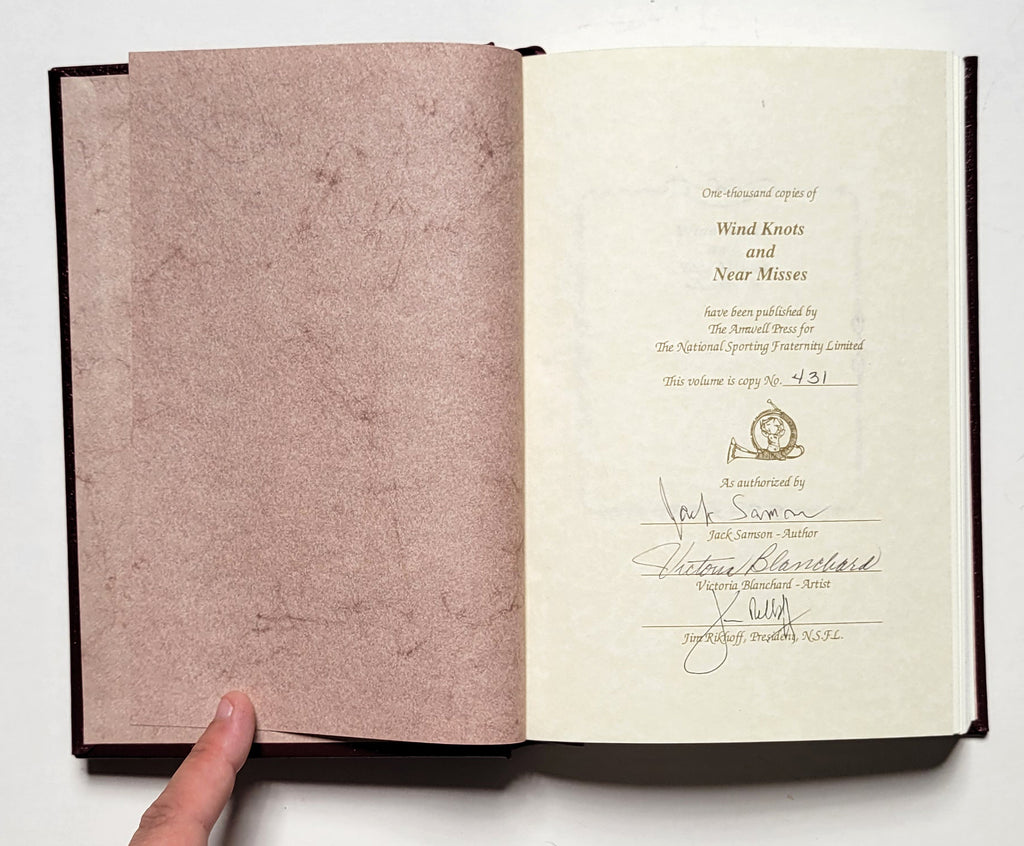 One-thousand copies of
Wind Knots
and
Near Misses
have been published by
The Amwell Press for
The National Sporting Fraternity Limited
This volume is copy No. 431
As authorized by
Jack Samson
Jack Samson - Author
Victoria Blanchard
Victoria Blanchard - Artist
Jim Rikhoff
Jim Rikhoff, President, N.S.F.L.